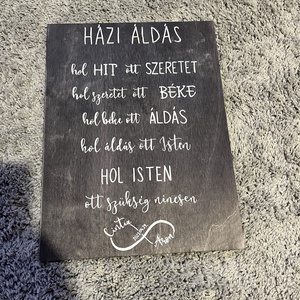 HÁZI ÁLDÁS
hol HIT ott SZERETET
hol szeretet ott BÉKE
hol béke ott ÁLDÁS
hol áldás ott Isten
HOL ISTEN
ott szükség nincsen